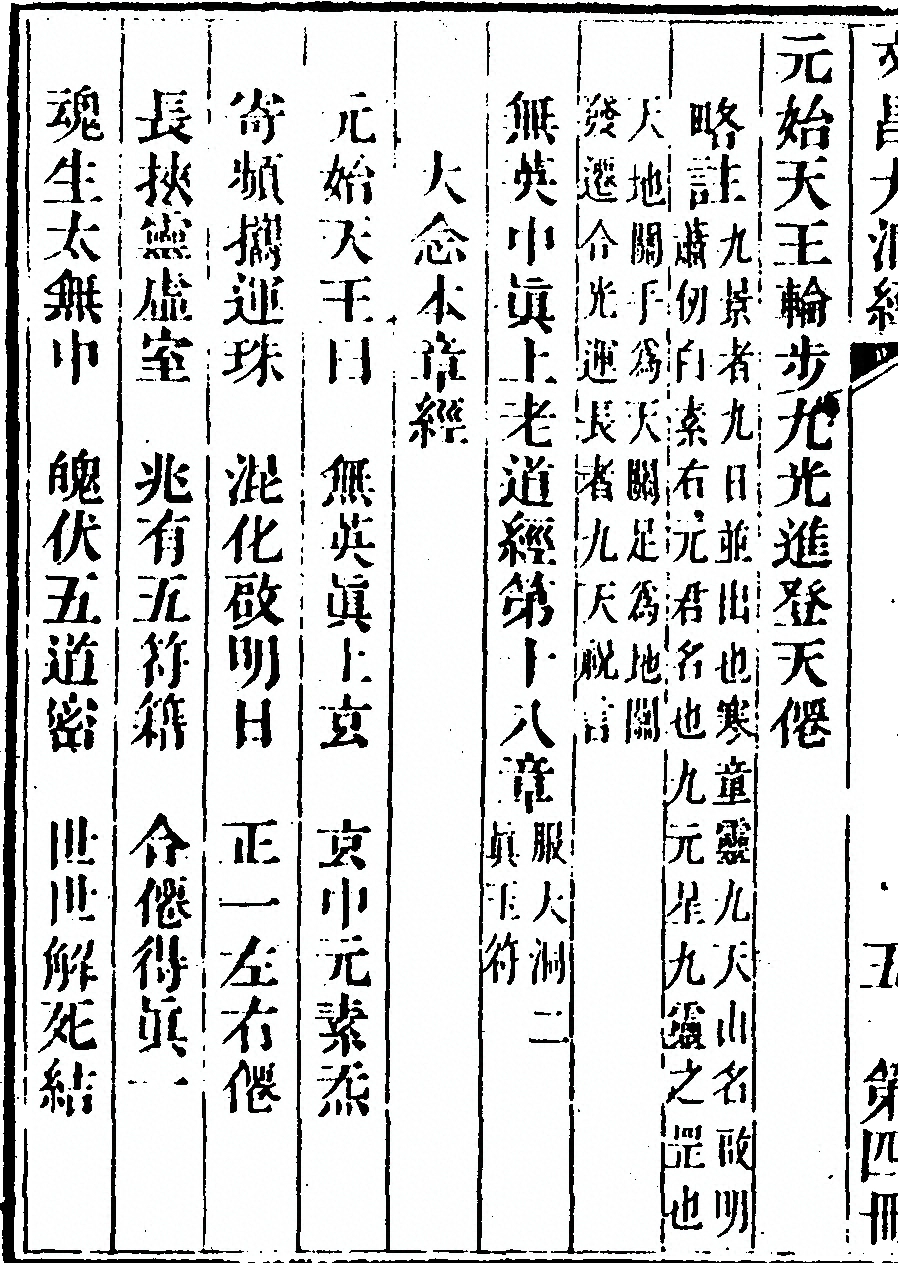 文昌大洞經　五　第四冊
元始天王輪步九光進登天僊
略註九景者九日並出也寒童靈九天山名啟明
蕭例白素右元君名也九元星九靈之罡也
天地關手爲天關足爲地關
發運合光運長者九天祝言
無英中眞上老道經第十八章服大洞二
眞玉符
大念本章經
元始天王曰　無英眞上玄　京中元素炁
寄頻攜運珠　混化啟明日　正一左右僊
長挾靈虛室　兆有五符籍　合僊得眞一
魂生太無中　魄伏五道密　世世解死結